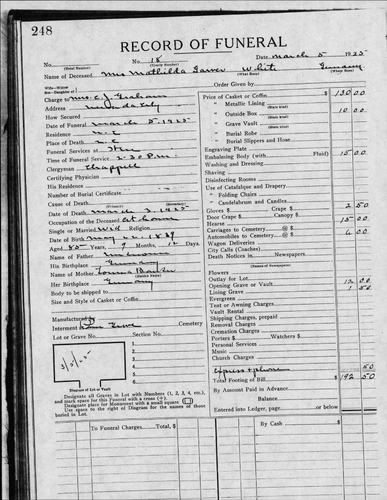 248
RECORD OF FUNERAL
No. (Total Number) No. 18 (Yearly Number) Date March 5 1925
Name of Deceased Mrs Mathilda White (What Race) Germany (Where Born)
Wife—Widow
Son—Daughter of
Charge to Mrs. C. J. Graham
Address Nevada City
How Secured
Date of Funeral March 5-1925
Residence N.C
Place of Death N.C
Funeral Services at
Time of Funeral Service 2-30 P.M.
Clergyman Chappell
Certifying Physician
His Residence
Number of Burial Certificate
Cause of Death (Primary)
Date of Death March 3-1925
Occupation of the Deceased At home
Single or Married Wid Religion
Date of Birth May 1839
Aged 85 Years, 9 Months, 12 Days
Name of Father Unknown
His Birthplace Germany
Name of Mother (Maiden Name)
Her Birthplace Germany
Body to be shipped to
Size and Style of Casket or Coffin
Manufactured by
Interment at Cemetery
Lot or Grave No. Section No.
1.
2.
3.
4.
5.
6.
Diagram of Lot or Vault
Designate all Graves in Lot with Numbers (1, 2, 3, 4, etc.),
and mark space for this Funeral with a cross (+).
Designate place for Monument with a small square
Use space to right of Diagram for names of those
buried in Lot.
Order Given by
Price of Casket or Coffin $ 130 00
" Metallic Lining (State kind)
" Outside Box (State kind) 10 00
" Grave Vault (State kind)
" Burial Robe (State kind)
" Burial Slippers and Hose
Engraving Plate
Embalming Body (with Fluid) 15 00
Washing and Dressing
Shaving
Disinfecting Rooms
Use of Catafalque and Drapery
" Folding Chairs
" Candelabrum and Candles
Gloves $ Crape $ 2 50
Door Crape $ Canopy $
Hearse 15 00
Carriages to Cemetery @ $
Automobiles to Cemetery @ $ 6 00
Wagon Deliveries
City Calls (Coaches)
Death Notices in Newspapers
(Names of Newspapers)
Flowers
Outlay for Lot
Opening Grave or Vault 12 00
Lining Grave 1 50
Evergreen
Tent or Awning Charges
Vault Rental
Shipping Charges, prepaid
Removal Charges
Cremation Charges
Porters $ Watchers $
Personal Services
Music
Church Charges
Express + phone 50
Total Footing of Bill $ 192 50
By Amount Paid in Advance
Balance
Entered into Ledger, page or below
To Funeral Charges, Total $ By Cash $